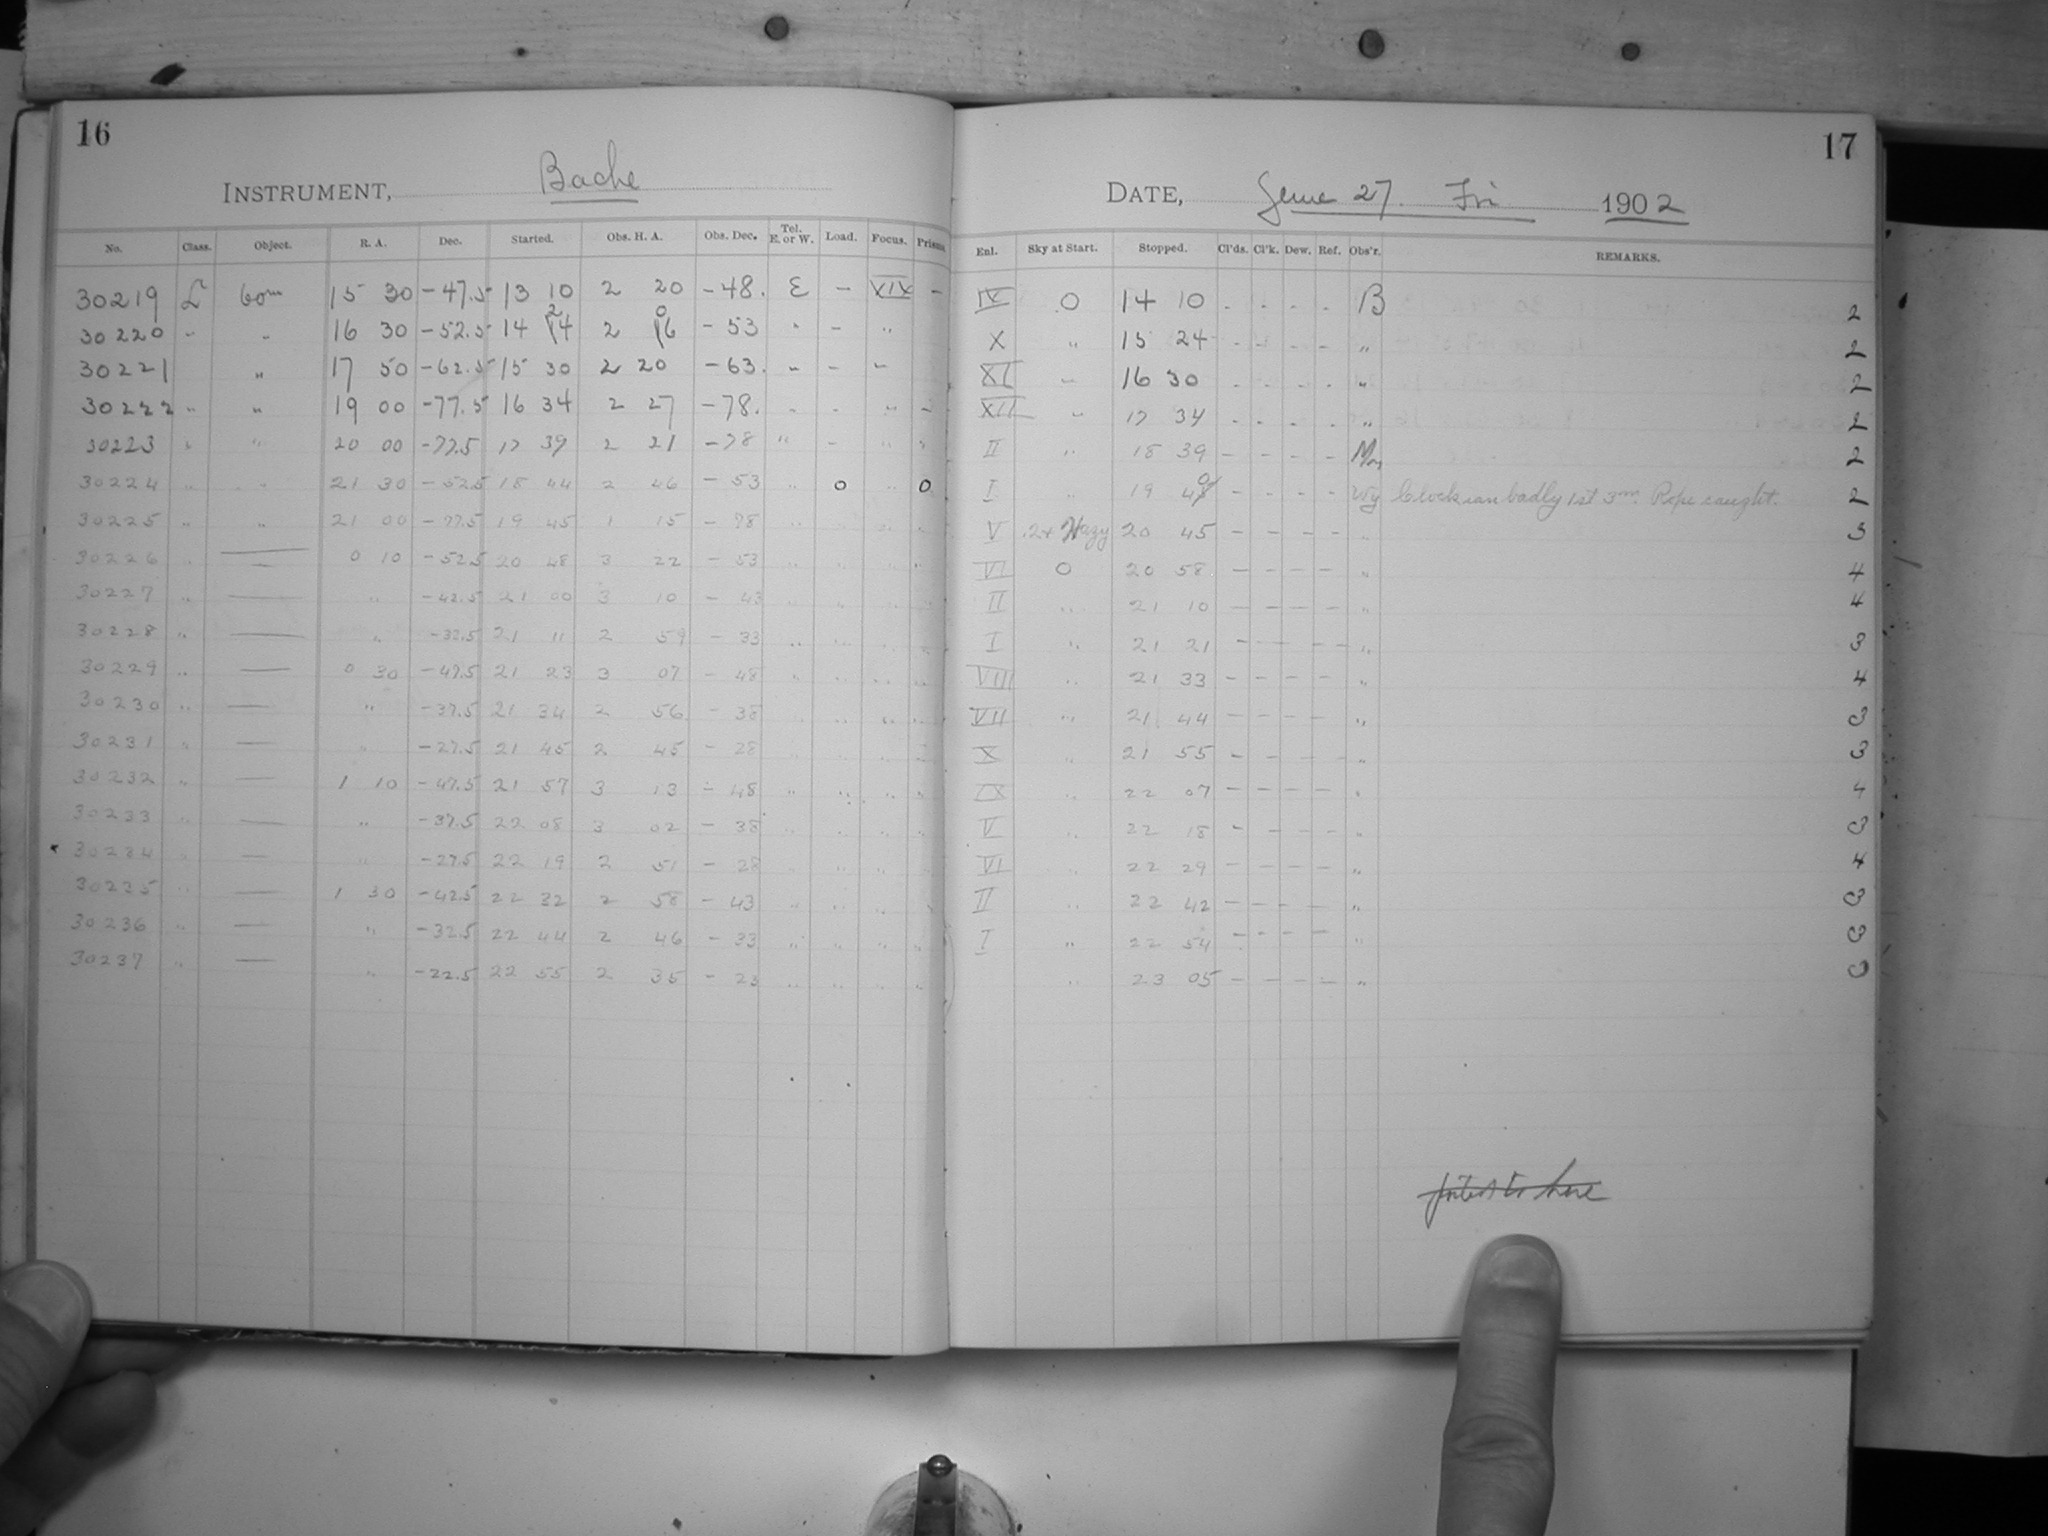 16
INSTRUMENT, Bache
No. Class. Object. R. A. Dec. Started. Obs. H. A. Obs. Dec. Tel. E. or W. Load. Focus. Prisms.
30219 L 60m 15 30 -47.5 13 10 2 20 -48. E - XIX -
30220 " " 16 30 -52.5 14 24 2 06 -53 " - "
30221 " 17 50 -62.5 15 30 2 20 -63. " - "
30222 " " 19 00 -77.5 16 34 2 27 -78. " - " -
30223 " " 20 00 -77.5 17 39 2 21 -78 " - " "
30224 " " 21 30 -52.5 18 44 2 46 -53 " 0 " 0
30225 " " 21 00 -77.5 19 45 1 15 -78 " " " "
30226 " — 0 10 -52.5 20 48 3 22 -53 " " " "
30227 " — " -42.5 21 00 3 10 -43 " " " "
30228 " — " -32.5 21 11 2 59 -33 " " " "
30229 " — 0 30 -47.5 21 23 3 07 -48 " " " "
30230 " — " -37.5 21 34 2 56 -38 " " " "
30231 " — " -27.5 21 45 2 45 -28 " " " "
30232 " — 1 10 -47.5 21 57 3 13 -48 " " " "
30233 " — " -37.5 22 08 3 02 -38 " " " "
30234 " — " -27.5 22 19 2 51 -28 " " " "
30235 " — 1 30 -42.5 22 32 2 58 -43 " " " "
30236 " — " -32.5 22 44 2 46 -33 " " " "
30237 " — " -22.5 22 55 2 35 -23 " " " "
17
DATE, June 27. Fri 1902
Enl. Sky at Start. Stopped. Cl'ds. Cl'k. Dew. Ref. Obs'r. REMARKS.
IX 0 14 10 - - - - B 2
X " 15 24 - - - - " 2
XI " 16 30 - - - - " 2
XII " 17 34 - - - - " 2
II " 18 39 - - - - 2
I " 19 - - - - Wy Clock ran badly 1st 3m. Rope caught. 2
V .2+ Hazy 20 45 - - - - "
VI 0 20 58 - - - - " 4
II " 21 10 - - - - " 4
I " 21 21 - - - - " 3
VIII " 21 33 - - - - " 4
VII " 21 44 - - - - " 3
X " 21 55 - - - - " 3
IX " 22 07 - - - - " 4
V " 22 18 - - - - " 3
VI " 22 29 - - - - " 4
II " 22 42 - - - - " 3
I " 22 54 - - - - " 3
" 23 05 - - - - " 3
to here